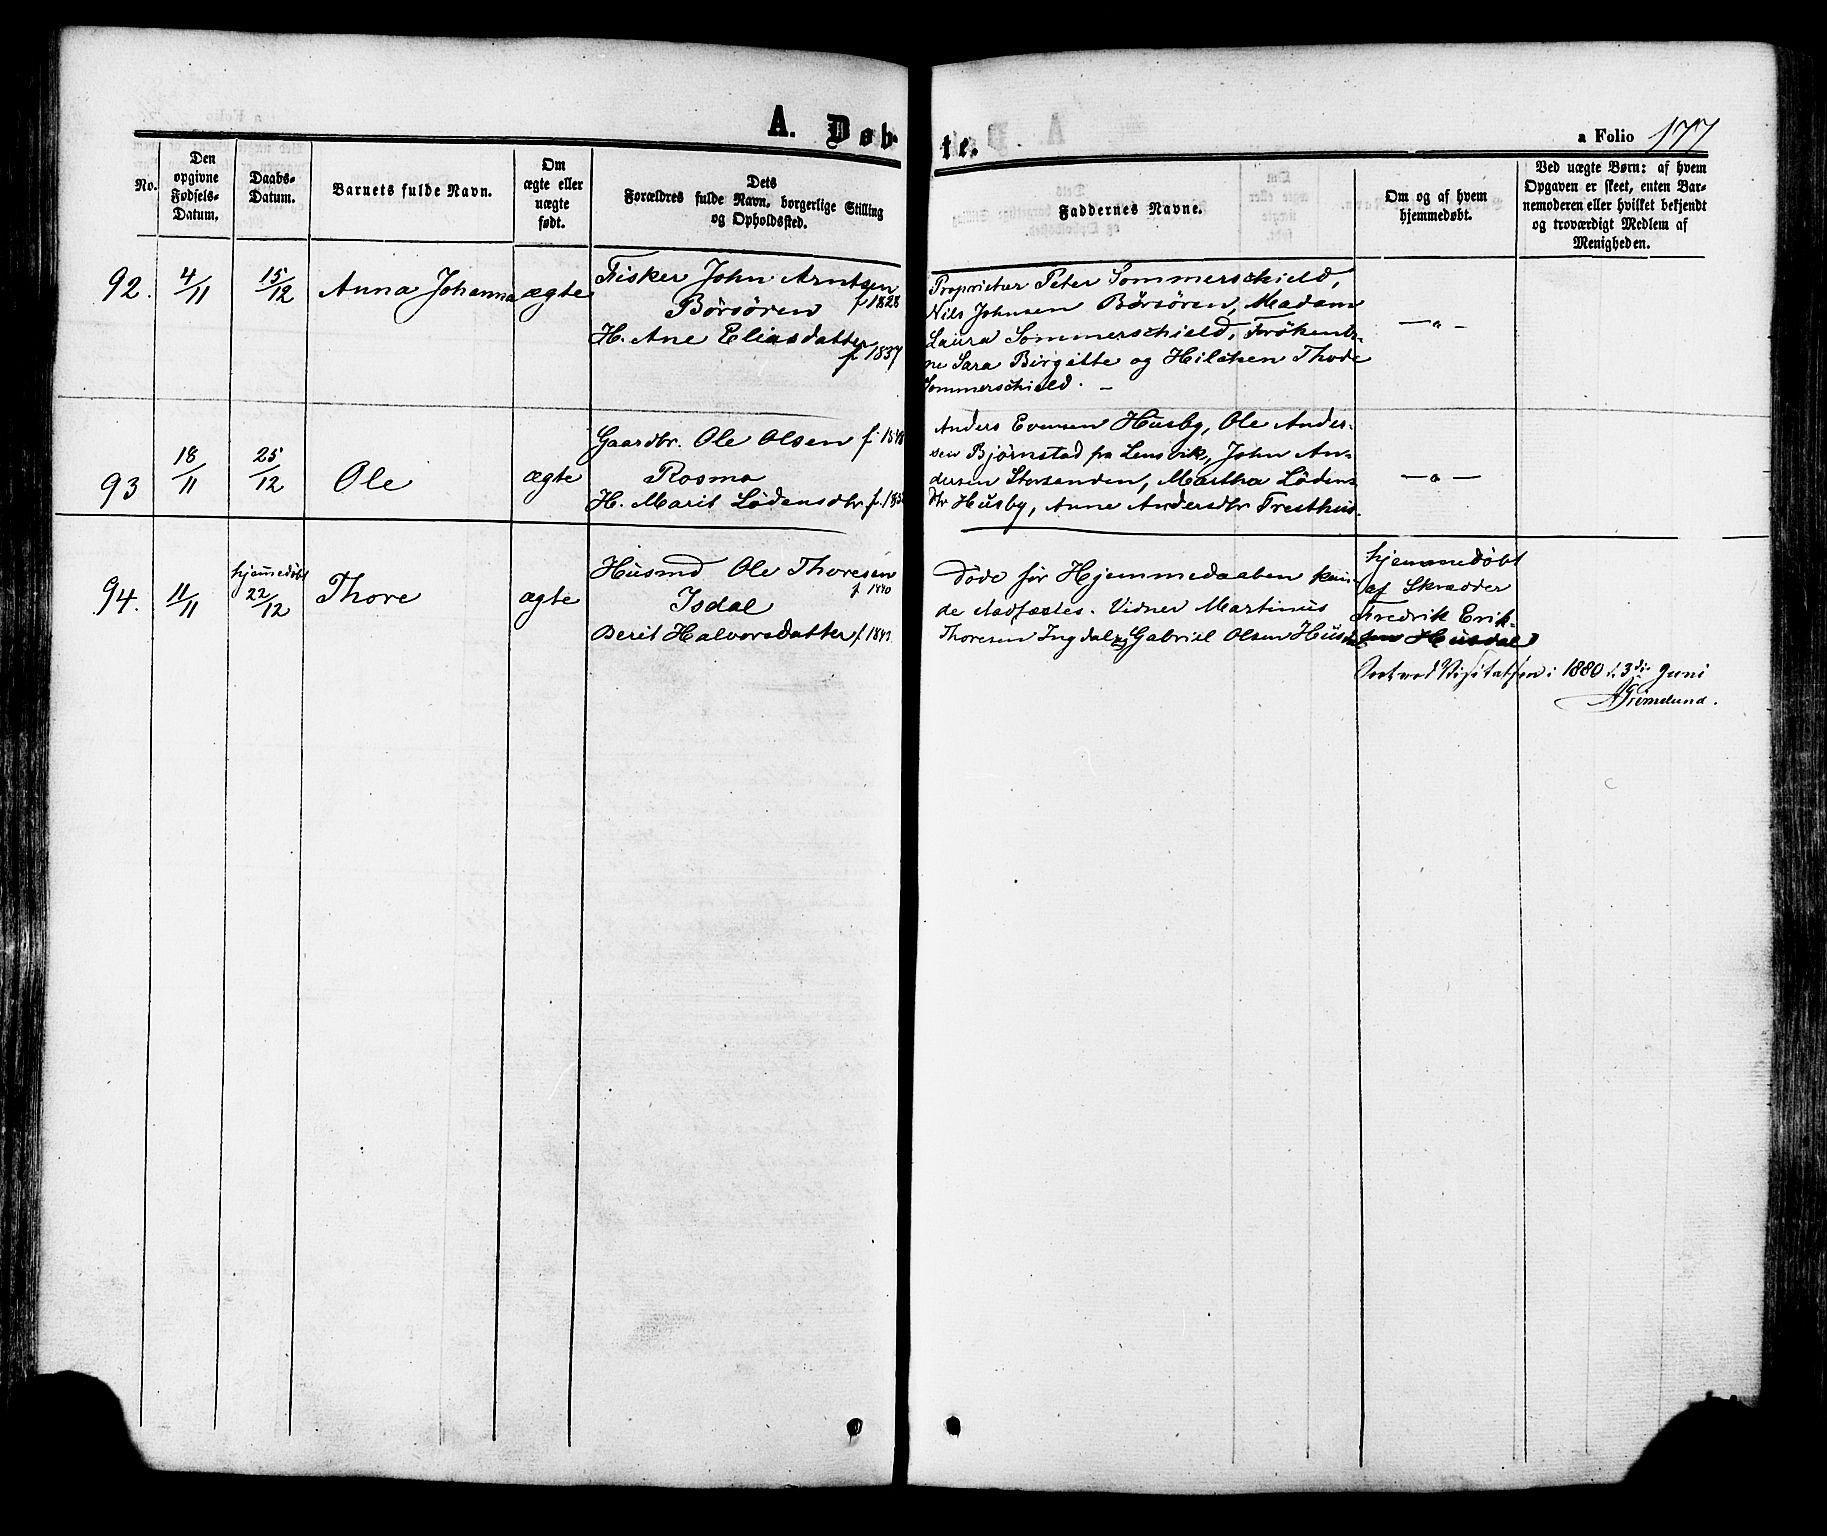 A. Døbte.
a Folio 177
No.
Den
opgivne
Fødsels-
Datum.
Daabs-
Datum.
Barnets fulde Navn.
Om
ægte eller
uægte
født.
Dets
Forældres fulde Navn, borgerlige Stilling
og Opholdssted.
Faddernes Navne.
Om og af hvem
hjemmedøbt.
Ved uægte Børn: af hvem
Opgaven er skeet, enten Bar-
nemoderen eller hvilket bekjendt
og troværdigt Medlem af
Menigheden.
92.
4/11
15/12
Anna Johanna
ægte
Fisker John Arntsen
Börsören f 1828
H. Ane Eliasdatter
f. 1837
Proprietær Peter Sommerschield,
Nils Johnsen Börsören, Madam
Laura Sommerschield, Frøkener-
ne Sara Birgitte og Hilchen Thode
Sommerschield. –
– " –
93
18/11
25/12
Ole
ægte
Gaardbr. Ole Olsen
Rosmo
H. Marit Lödensdtr
Anders Evensen Husby, Ole Ander-
sen Bjørnstad fra Lensvik, John An-
dersen Storsanden, Martha Lödens
dtr Husby, Anne Andersdtr Tresthus.
– " –
94.
11/11
hjemmedøbt
22/12
Thore
ægte
Husmd Ole Thoresen
f 1840
Isdal
Berit Halvorsdatter
Döde før Hjemmedaaben kun-
de stadfæstes. Vidner Martinus
Thoresen Ingdal og Gabriel Olsen
hjemmedöbt
af Skrædder
Fredrik Erik-
sen Husdal
Visitatsen i 1880 d. 3die Juni
AGrimelund.